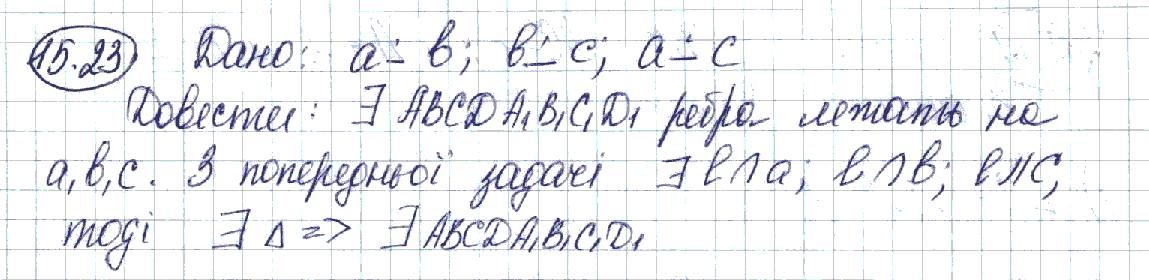 15.23 Дано: a ∸ b; b ∸ c; a ∸ c
Довести: ∃ ABCDA₁B₁C₁D₁ ребра лежать на
a, b, c. З попередньої задачі ∃ l∩a; l∩b; l∥c,
тоді ∃ Δ => ∃ ABCDA₁B₁C₁D₁